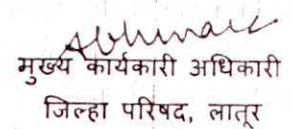 मुख्य कार्यकारी अधिकारी
जिल्हा परिषद, लातूर